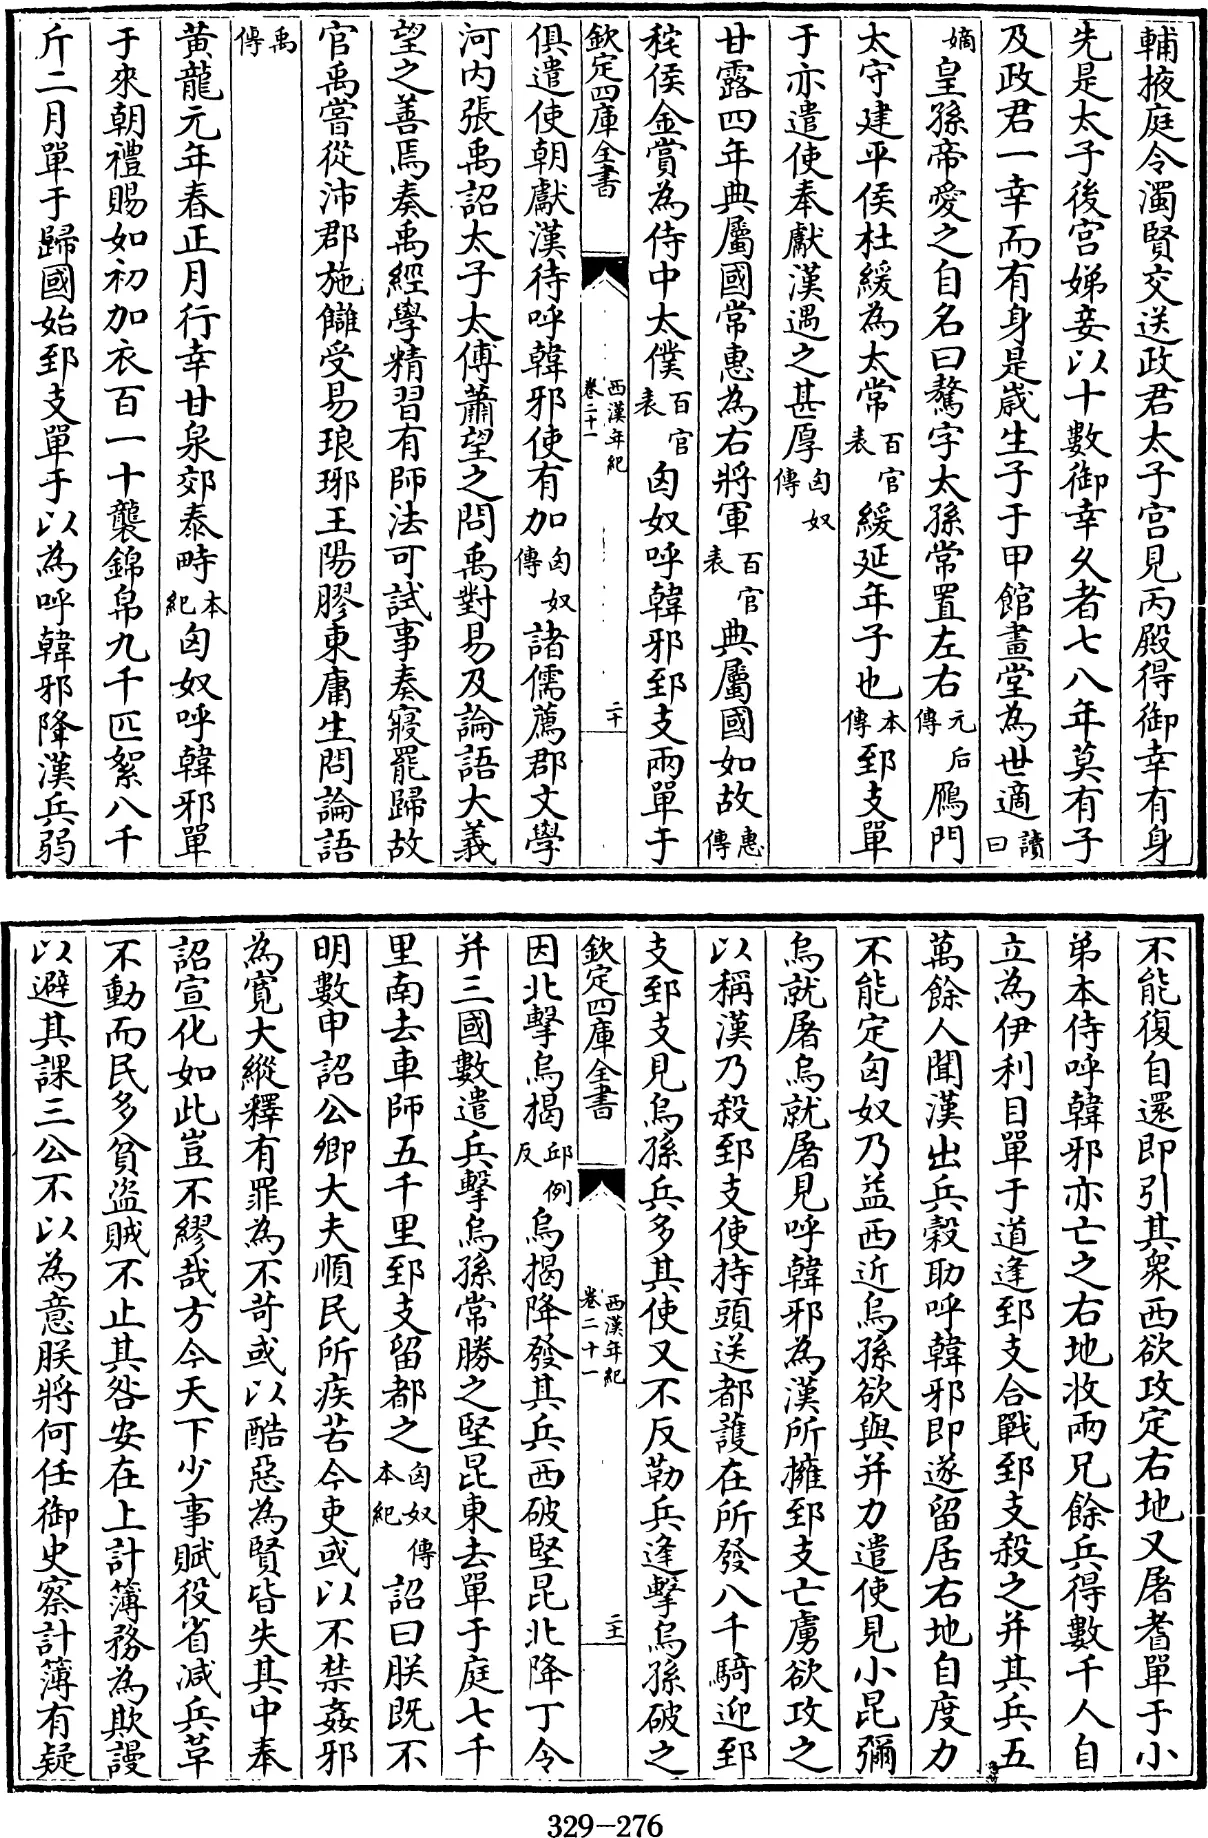 輔掖庭令濁賢交送政君太子宮見丙殿得御幸有身
先是太子後宮娣妾以十數御幸乆者七八年莫有子
及政君一幸而有身是嵗生子于甲館畫堂為世適讀曰
嫡皇孫帝愛之自名曰驁字太孫常置左右元后傳鴈門
太守建平侯杜緩為太常百官表緩延年子也本傳郅支單
于亦遣使奉獻漢遇之甚厚匈奴傳
甘露四年典屬國常惠為右將軍百官表典屬國如故惠傳
秺侯金賞為侍中太僕百官表匈奴呼韓邪郅支兩單于
欽定四庫全書
西漢年紀
卷二十一
二十
俱遣使朝獻漢待呼韓邪使有加匈奴傳諸儒薦郡文學
河内張禹詔太子太傅蕭望之問禹對易及論語大義
望之善焉奏禹經學精習有師法可試事奏寢罷歸故
官禹嘗從沛郡施讎受易琅琊王陽膠東庸生問論語
禹傳
黃龍元年春正月行幸甘泉郊泰畤本紀匈奴呼韓邪單
于來朝禮賜如初加衣百一十襲錦帛九千匹絮八千
斤二月單于歸國始郅支單于以為呼韓邪降漢兵弱
不能復自還即引其衆西欲攻定右地又屠耆單于小
弟本侍呼韓邪亦亡之右地收兩兄餘兵得數千人自
立為伊利目單于道逢郅支合戰郅支殺之并其兵五
萬餘人聞漢出兵穀助呼韓邪即遂留居右地自度力
不能定匈奴乃益西近烏孫欲與并力遣使見小昆彌
烏就屠烏就屠見呼韓邪為漢所擁郅支亡虜欲攻之
以稱漢乃殺郅支使持頭送都護在所發八千騎迎郅
支郅支見烏孫兵多其使又不反勒兵逢擊烏孫破之
欽定四庫全書
西漢年紀
卷二十一
二十一
因北擊烏揭邱例反烏揭降發其兵西破堅昆北降丁令
并三國數遣兵擊烏孫常勝之堅昆東去單于庭七千
里南去車師五千里郅支留都之匈奴傳本紀詔曰朕既不
明數申詔公卿大夫順民所疾苦今吏或以不禁姦邪
為寛大縱釋有罪為不苛或以酷惡為賢皆失其中奉
詔宣化如此豈不繆哉方今天下少事賦役省減兵革
不動而民多貧盜賊不止其咎安在上計簿務為欺謾
以避其課三公不以為意朕將何任御史察計簿有疑
329-276